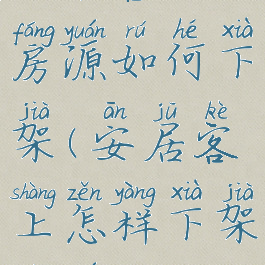 fáng yuán rú hé xià
房源如何下
jià ān jū kè
架(安居客
shàng zěn yàng xià jià
上怎样下架